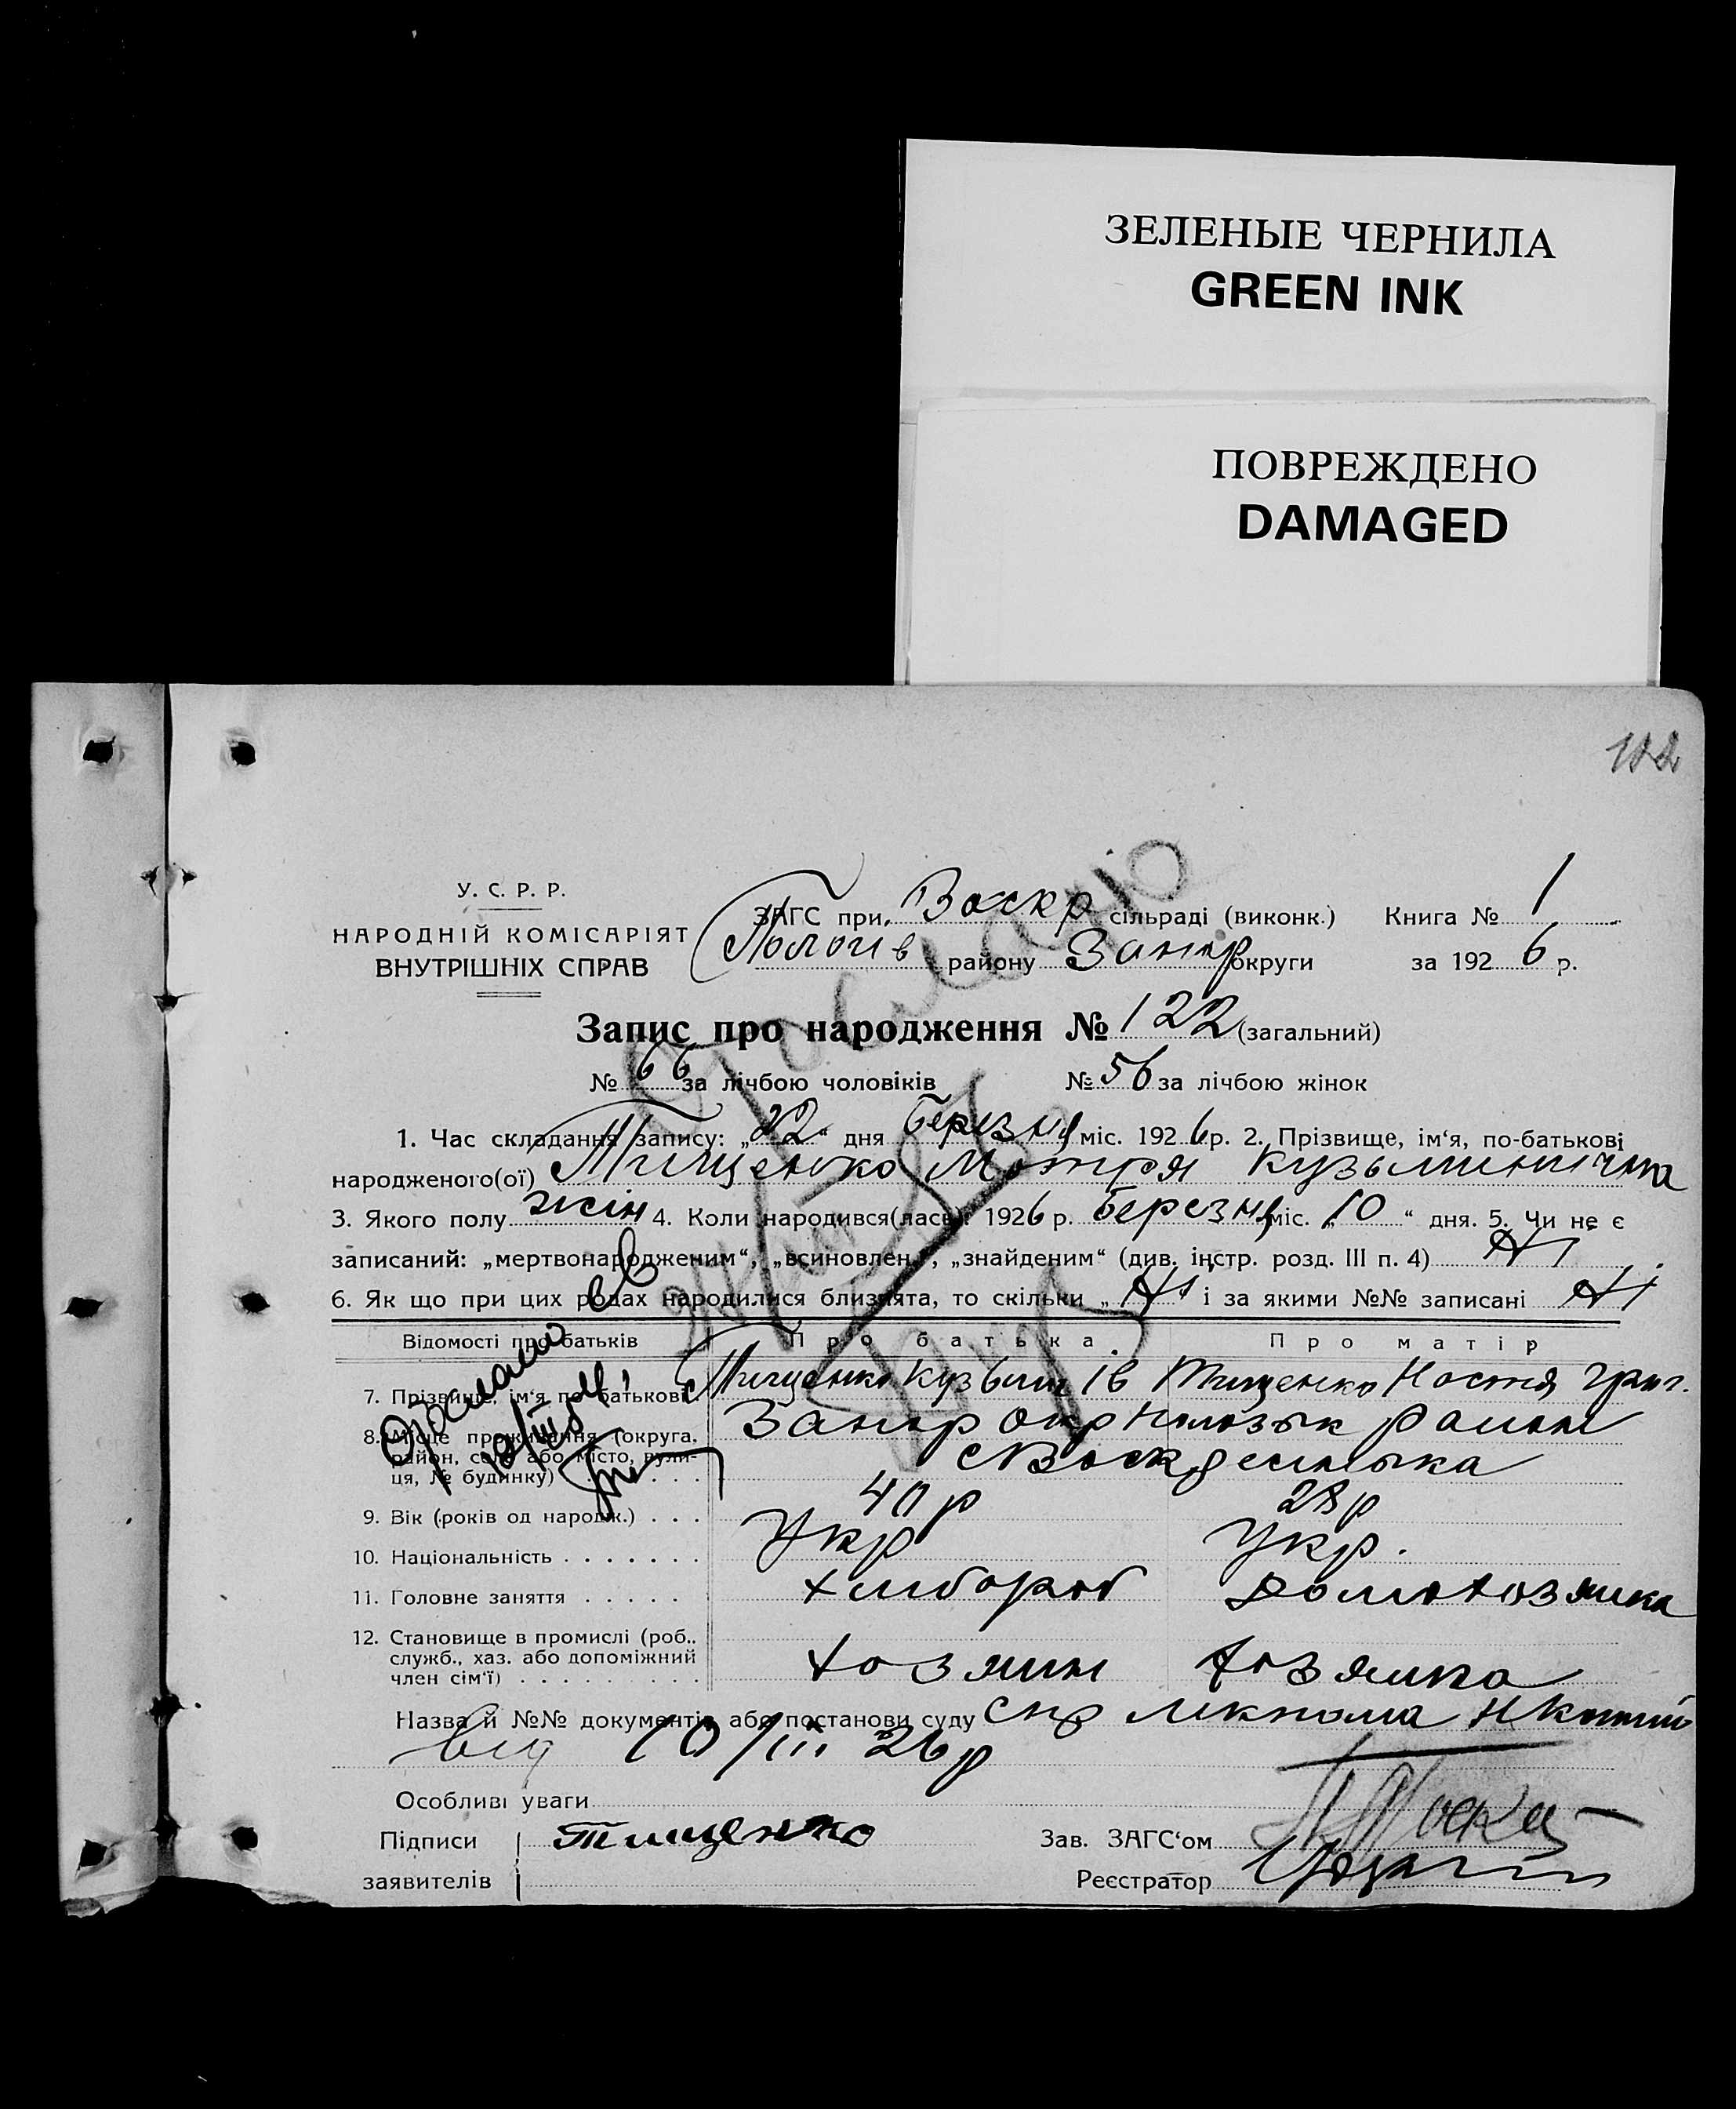 ЗЕЛЕНЫЕ ЧЕРНИЛА
GREEN INK
ПОВРЕЖДЕНО
DAMAGED
У. С. Р. Р.
НАРОДНІЙ КОМІСАРІЯТ
ВНУТРІШНІХ СПРАВ
ЗАГС при Воскр сільраді (виконк.) Книга № 1
Пологів району Запор округи за 1926 р.
Запис про народження № 122 (загальний)
№ 66 за лічбою чоловіків № 56 за лічбою жінок
1. Час складання запису: „22“ дня березня міс. 1926 р. 2. Прізвище, ім‘я, по-батькові
народженого(ої) Тищенко Мотря Кузьминична
3. Якого полу жін 4. Коли народився(лась) 1926 р. березня міс. „10“ дня. 5. Чи не є
записаний: „мертвонародженим“, „всиновлен.“, „знайденим“ (див. інстр. розд. III п. 4) Ні
6. Як що при цих родах народилися близнята, то скільки „Ні“ і за якими №№ записані Ні
Відомості про батьків Про батька Про матір
7. Прізвище, ім‘я по-батькові Тищенко Кузьма Ів Тищенко Настя Григ.
8. Місце проживання (округа, район, село або місто, вулиця, № будинку) Запор окр район
9. Вік (років од народж.) 40 р 28 р
10. Національність Укр Укр.
11. Головне заняття хлібороб домохозяйка
12. Становище в промислі (роб., служб., хаз. або допоміжний член сім‘ї) хозяин хозяйка
Назва й №№ документів або постанови суду
від 10/III 26 р
Особливі уваги
Підписи Тищенко Зав. ЗАГС‘ом
заявителів Реєстратор